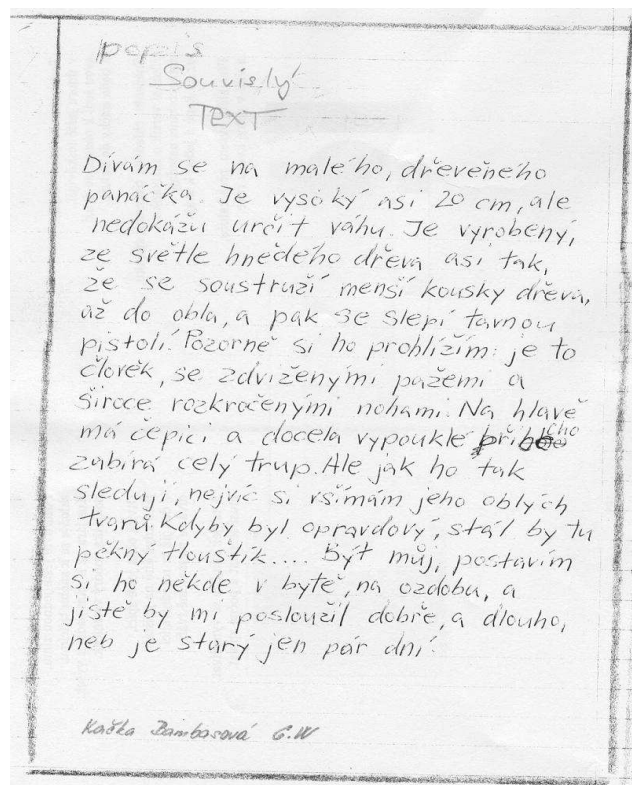 popis
Souvislý
TEXT
Dívám se na malého, dřeveného
panáčka. Je vysoký asi 20 cm, ale
nedokážu určit váhu. Je vyrobený,
ze světle hnědého dřeva asi tak,
že se soustruží menší kousky dřeva,
až do obla, a pak se slepí tavnou
pistolí. Pozorně si ho prohlížím: je to
člověk, se zdviženými pažemi a
široce rozkročenými nohami. Na hlavě
má čepici a docela vypouklé břicho
zabírá celý trup. Ale jak ho tak
sleduji, nejvíc si všímám jeho oblých
tvarů. Kdyby byl opravdový, stál by tu
pěkný tlouštík.... Být můj, postavím
si ho někde v bytě, na ozdobu, a
jistě by mi posloužil dobře, a dlouho,
neb je starý jen pár dní.
Kačka Bambasová 6.